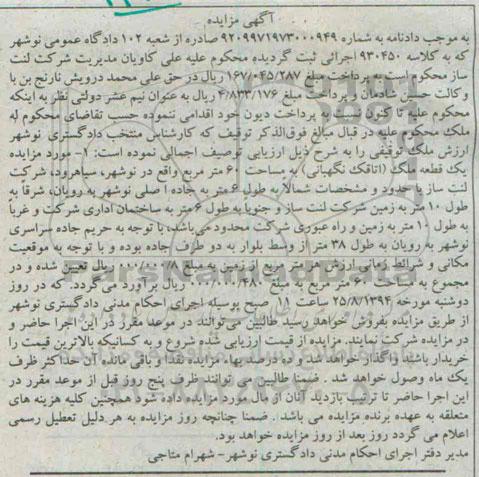 آگهی مزایده
به موجب دادنامه به شماره ۹۲۰۹۹۷۱۹۷۳۰۰۰۹۴۹ صادره از شعبه ۱۰۲ دادگاه عمومی نوشهر
که به کلاسه ۹۳۰۴۵۰ اجرائی ثبت گردیده محکوم علیه علی کاویان مدیریت شرکت لنت
ساز محکوم است به پرداخت مبلغ ۱۶۷/۰۴۵/۲۸۷ ریال در حق علی محمد درویش نارنج بن با
وکالت حسین شادمان و پرداخت مبلغ ۴/۸۳۳/۱۷۶ ریال به عنوان نیم عشر دولتی نظر به اینکه
محکوم علیه تا کنون نسبت به پرداخت دیون خود اقدامی ننموده حسب تقاضای محکوم له
ملک محکوم علیه در قبال مبالغ فوق‌الذکر توقیف که کارشناس منتخب دادگستری نوشهر
ارزش ملک توقیفی را به شرح ذیل ارزیابی توصیف اجمالی نموده است: مورد مزایده
یک قطعه ملک (اتاقک نگهبانی) به مساحت ۶۰ متر مربع واقع در نوشهر، سیاهرود، شرکت
لنت ساز با حدود و مشخصات شمالاً به طول ۶ متر به جاده اصلی نوشهر به رویان، شرقاً به
طول ۱۰ متر به زمین شرکت لنت ساز و جنوباً به طول ۶ متر به ساختمان اداری شرکت و غرباً
به طول ۱۰ متر به زمین و راه عبوری شرکت محدود می‌باشد، با توجه به حریم جاده سراسری
نوشهر به رویان به طول ۳۸ متر از وسط بلوار به دو طرف جاده بوده و با توجه به موقعیت
مکانی و شرائط زمانی ارزش هر متر مربع از زمین به مبلغ ریال تعیین شده و در
مجموع به مساحت ۶۰ متر مربع به مبلغ ریال برآورد می‌گردد. که در روز
دوشنبه مورخه ۲۵/۸/۱۳۹۴ ساعت ۱۱ صبح بوسیله اجرای احکام مدنی دادگستری نوشهر
از طریق مزایده بفروش خواهد رسید طالبین می‌توانند در موعد مقرر در این اجرا حاضر و
در مزایده شرکت نمایند. مزایده از قیمت ارزیابی شده شروع و به کسانیکه بالاترین قیمت را
خریدار باشند واگذار خواهد شد و ده درصد بهاء مزایده نقداً و باقی مانده آن حداکثر ظرف
یک ماه وصول خواهد شد . ضمنا طالبین می توانند ظرف پنج روز قبل از موعد مقرر در
این اجرا حاضر تا ترتیب بازدید آنان از مال مورد مزایده داده شود همچنین کلیه هزینه های
متعلقه به عهده برنده مزایده می باشد . ضمنا چنانچه روز مزایده به هر دلیل تعطیل رسمی
اعلام می گردد روز بعد از روز مزایده خواهد بود.
مدیر دفتر اجرای احکام مدنی دادگستری نوشهر- شهرام متاجی